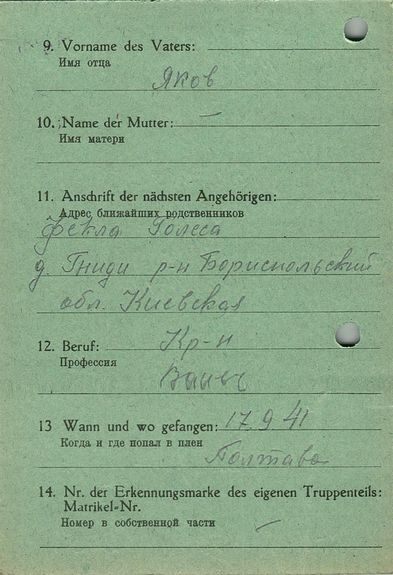 9. Vorname des Vaters:
Имя отца
Яков
10. Name der Mutter: —
Имя матери
11. Anschrift der nächsten Angehörigen:
Адрес ближайших родственников
Фекла Голеса
д. Гниди р-н Бориспольский
обл. Киевская
12. Beruf: Кр-н
Профессия
13 Wann und wo gefangen: 17.9.41
Когда и где попал в плен
Полтава
14. Nr. der Erkennungsmarke des eigenen Truppenteils:
Matrikel-Nr.
Номер в собственной части